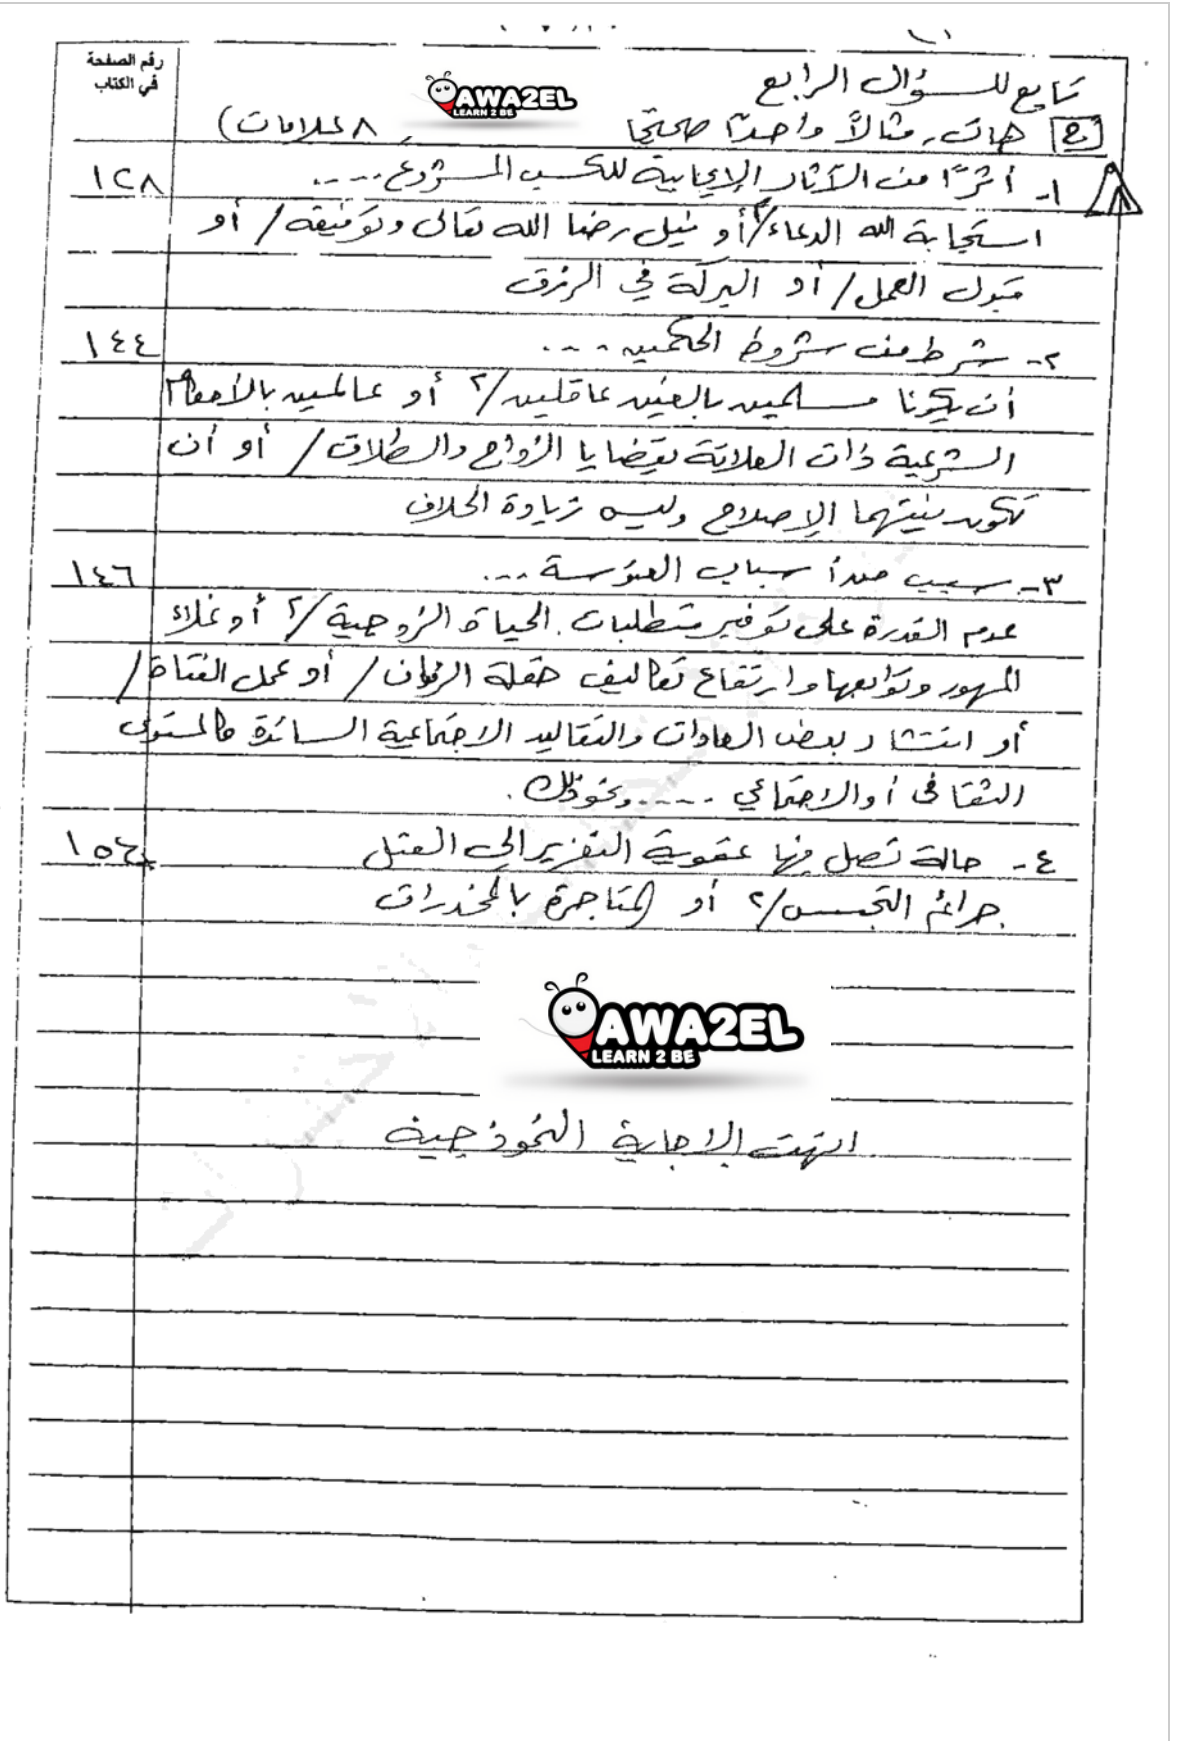 رقم الصفحة
في الكتاب
تابع للسؤال الرابع
AWA2EL
LEARN 2 BE
ج هات مثالاً واحداً صحيحاً (٨ علامات)
١- أثراً من الآثار الإيجابية للكسب المشروع.... ١٢٨
استجابة الله الدعاء/٢ أو نيل رضا الله تعالى وتوفيقه/ أو
قبول العمل/ أو البركة في الرزق
٢- شرط من شروط الحكمين .... ١٤٤
أن يكونا مسلمين بالغين عاقلين/٢ أو عالمين بالأحكام
الشرعية ذات العلاقة بقضايا الزواج والطلاق/ أو أن
تكون نيتهما الإصلاح وليس زيادة الخلاف
٣- سبب من أسباب العنوسة ... ١٤٦
عدم القدرة على توفير متطلبات الحياة الزوجية/٢ أو غلاء
المهور وتوابعها وارتفاع تكاليف حفلة الزفاف/ أو عمل الفتاة/
أو انتشار بعض العادات والتقاليد الاجتماعية السائدة كالمستوى
الثقافي أو الاجتماعي ..... ونحو ذلك.
٤- حالة تصل فيها عقوبة التعزير إلى القتل
جرائم التجسس/٢ أو المتاجرة بالمخدرات
AWA2EL
LEARN 2 BE
انتهت الإجابة النموذجية